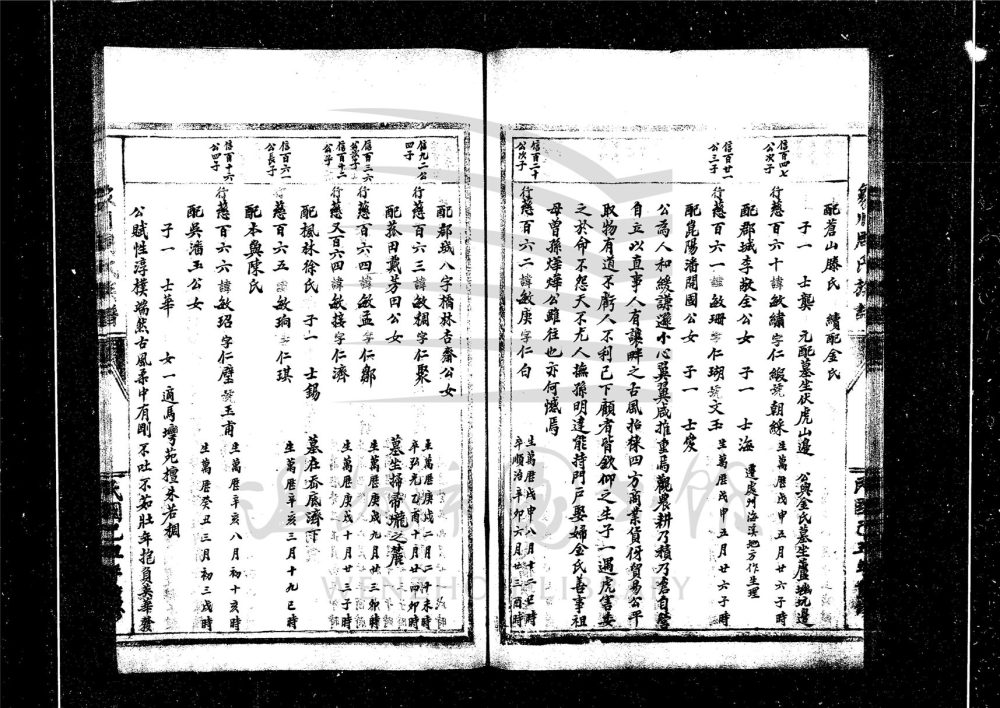 配蒼山滕氏 續配金氏
子一 士龔 元配墓坐伏虎山邊 公與金氏墓坐蘆堀坑邊
信百四七公次子
行慈百六十諱敏繡字仁緞號朝綵 生萬曆戊申五月廿六子時
遷處州海溪地方作生理
配郡城李敬全公女 子一 士海
信百廿一公三子
行慈百六一諱敏珊字仁瑚號文玉 生萬曆戊申五月廿六子時
配崑陽潘開國公女 子一 士
公為人和緩謙遜小心翼翼咸推重焉觀農耕乃積乃倉自營
自立以直事人有讓畔之古風招徠四方商業貨伢貿易公平
取物有道不虧人不利己下顧者皆欽仰之生子一遇虎害安
之於命不怨天不尤人撫孫明達能持門戶娶婦金氏善事祖
母曾孫燁燁公雖往也亦何憾焉
信百二十公次子
行慈百六二諱敏庚字仁白 生萬曆戊申八月十二丑時 卒順治辛卯六月廿三酉時
配郡城八字橋林杏齋公女
信九二公四子
行慈百六三諱敏稠字仁聚 生萬曆庚戌二月二十未時 卒弘光乙酉十月廿四卯時
配菰田戴芳田公女 墓坐掃帚壠之麓
信百三六
行慈百六四諱敏孟字仁鄒 生萬曆庚戌九月廿三卯時
信百廿二公子
行慈又百六四諱敏接字仁濟 生萬曆庚戌十月廿二子時
配楓林徐氏 子一 士錫 墓在岙底濟下
信百六一公長子
慈百六五諱敏珦字仁琪 生萬曆辛亥三月十九巳時
配本奧陳氏
信百十六公四子
行慈百六六諱敏玿字仁璧號玉甫 生萬曆辛亥八月初十亥時
配吳潘玉公女 生萬曆癸丑三月初三戌時
子一 士華 女一適馬灣苑擅朱若稠
公賦性淳樸端然古風柔中有剛不吐不茹壯年抱負英華發
WENZHOU LIBRARY